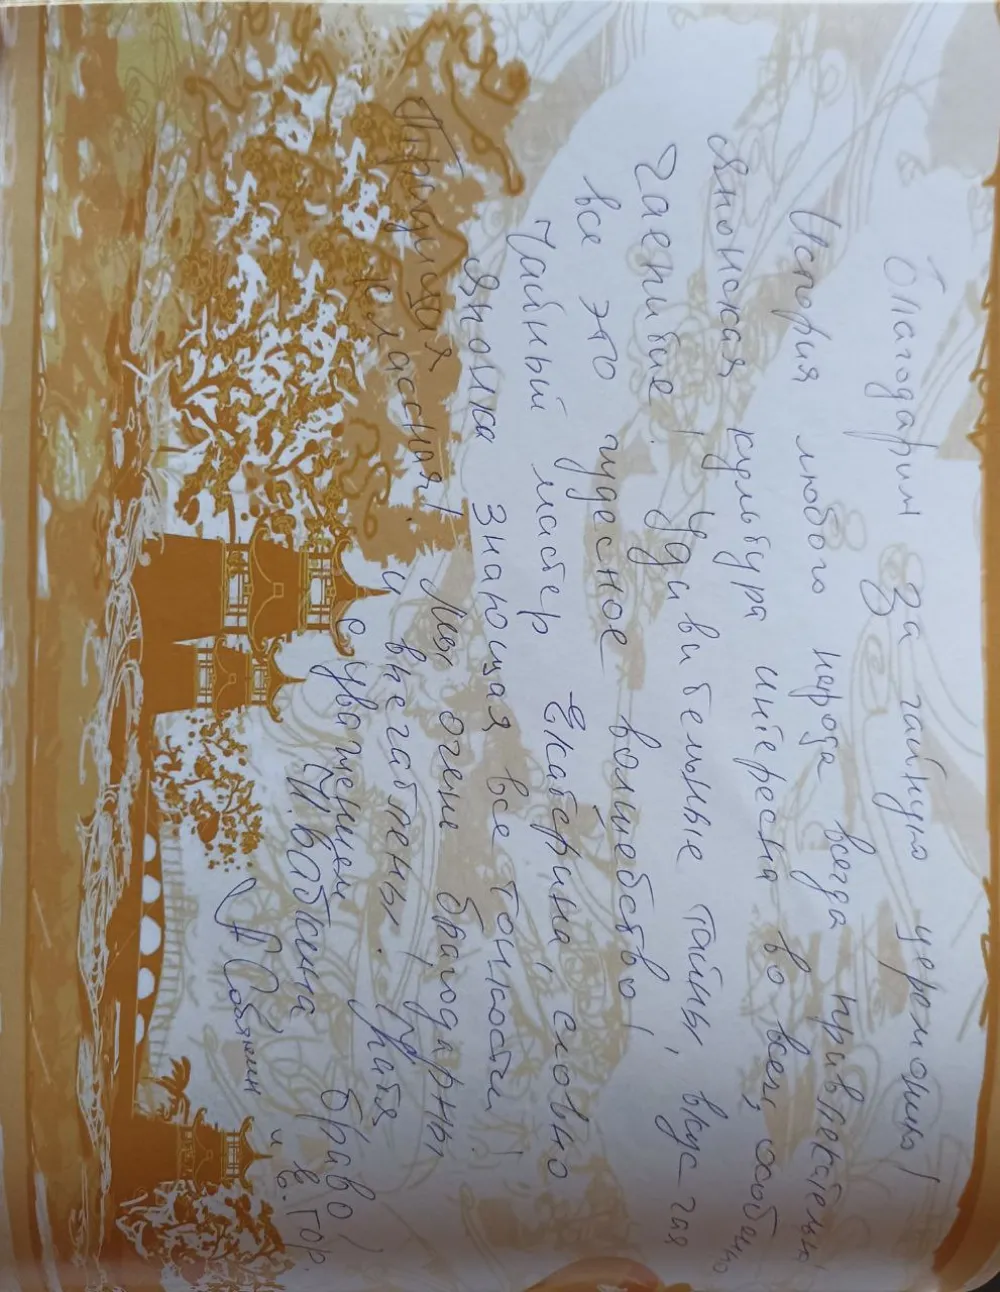 Благодарим за чайную церемонию!
История любого народа всегда привлекательна
Японская культура интересна во всем, особенно
чаепитие! Удивительные тайны, вкус чая
все это чудесное волшебство!
Чайный мастер Екатерина, словно
Японка знающая все тонкости!
Традиция классная! Мы очень благодарны
и впечатлены.
С уважением браво!